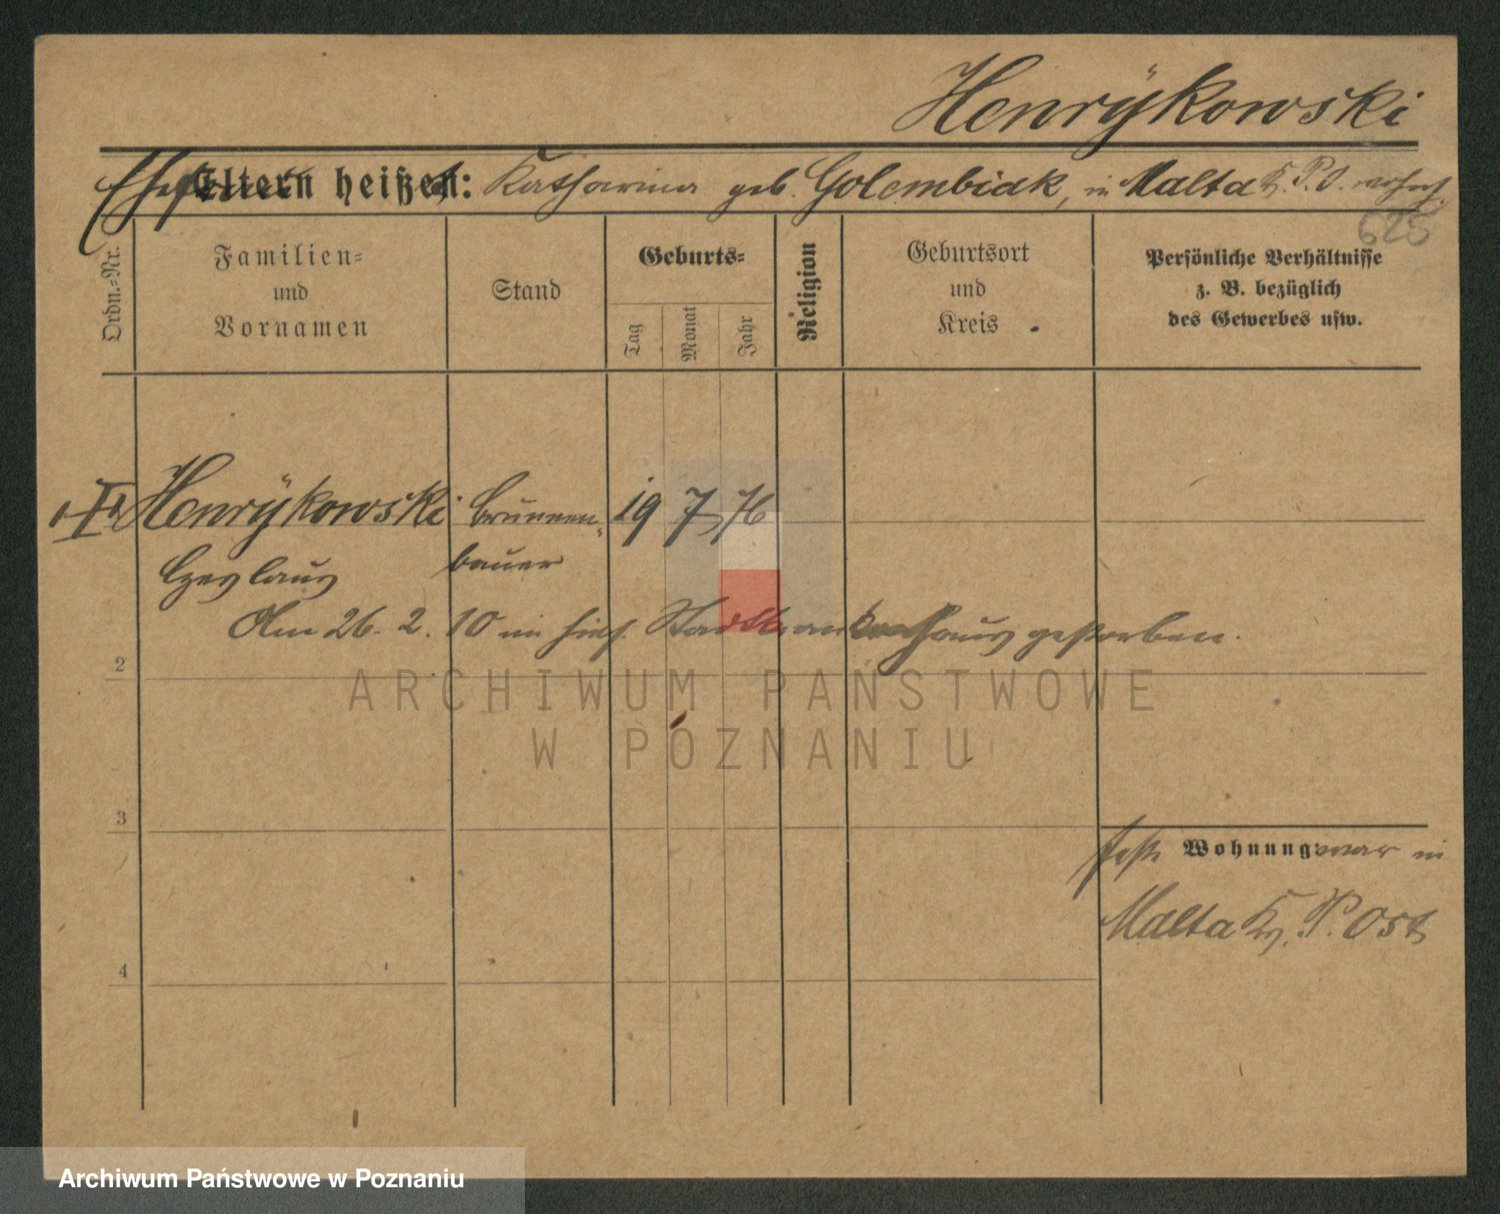 Henrÿkowski
Ehefrau Eltern heißen: Katharina geb. Golembiak, in Malta K. P. O. wohnh.
625
Ordn.-Nr.
Familien-
und
Vornamen
Stand
Geburts-
Tag
Monat
Jahr
Religion
Geburtsort
und
Kreis
Persönliche Verhältnisse
z. B. bezüglich
des Gewerbes usw.
Henrÿkowski Brunnen- 19 7 76
Czeslaus bauer
Am 26. 2. 10 im hies. Stadtkrankenhaus gestorben.
2
3
4
feste Wohnung war in
Malta K. P. Ost
ARCHIWUM PAŃSTWOWE
W POZNANIU
Archiwum Państwowe w Poznaniu